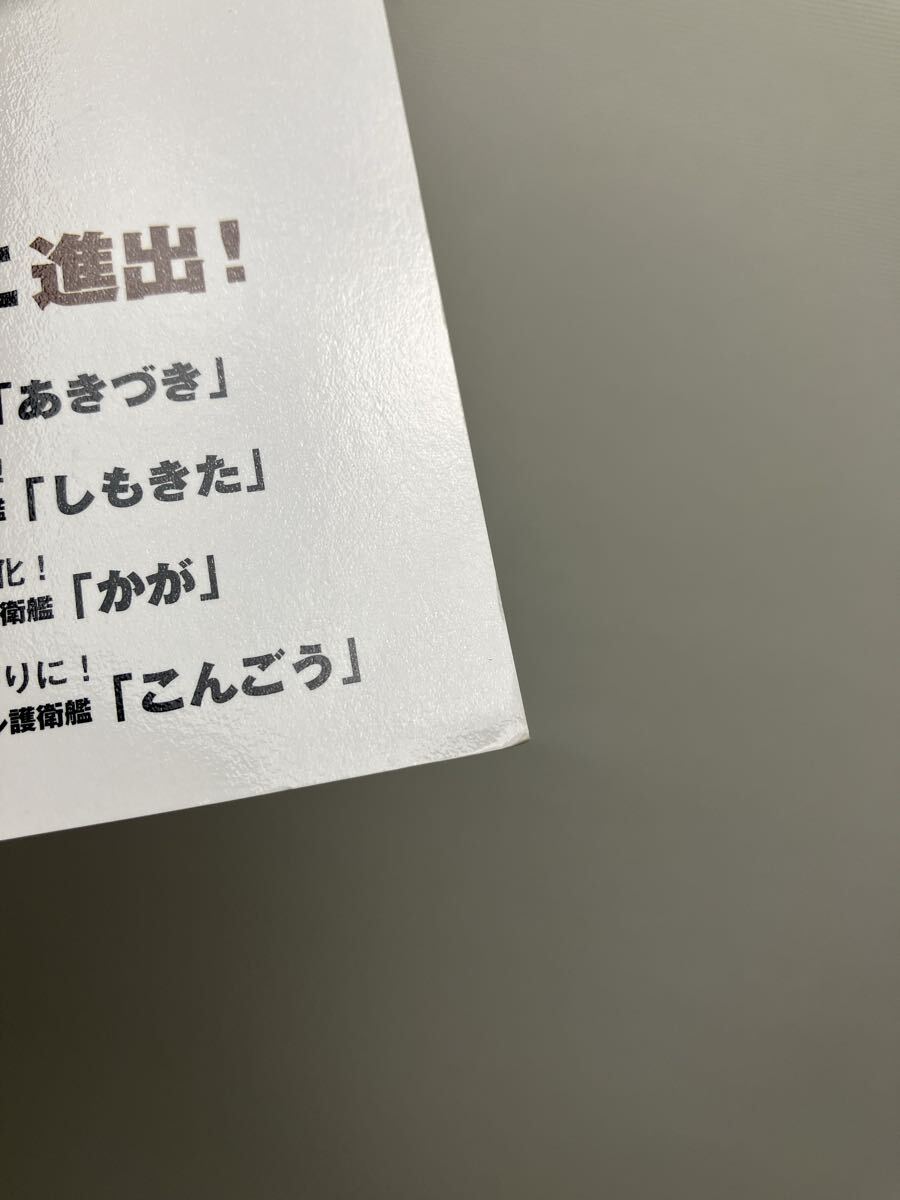 に進出!
「あきづき」
「しもきた」
化!
衛艦「かが」
りに!
護衛艦「こんごう」